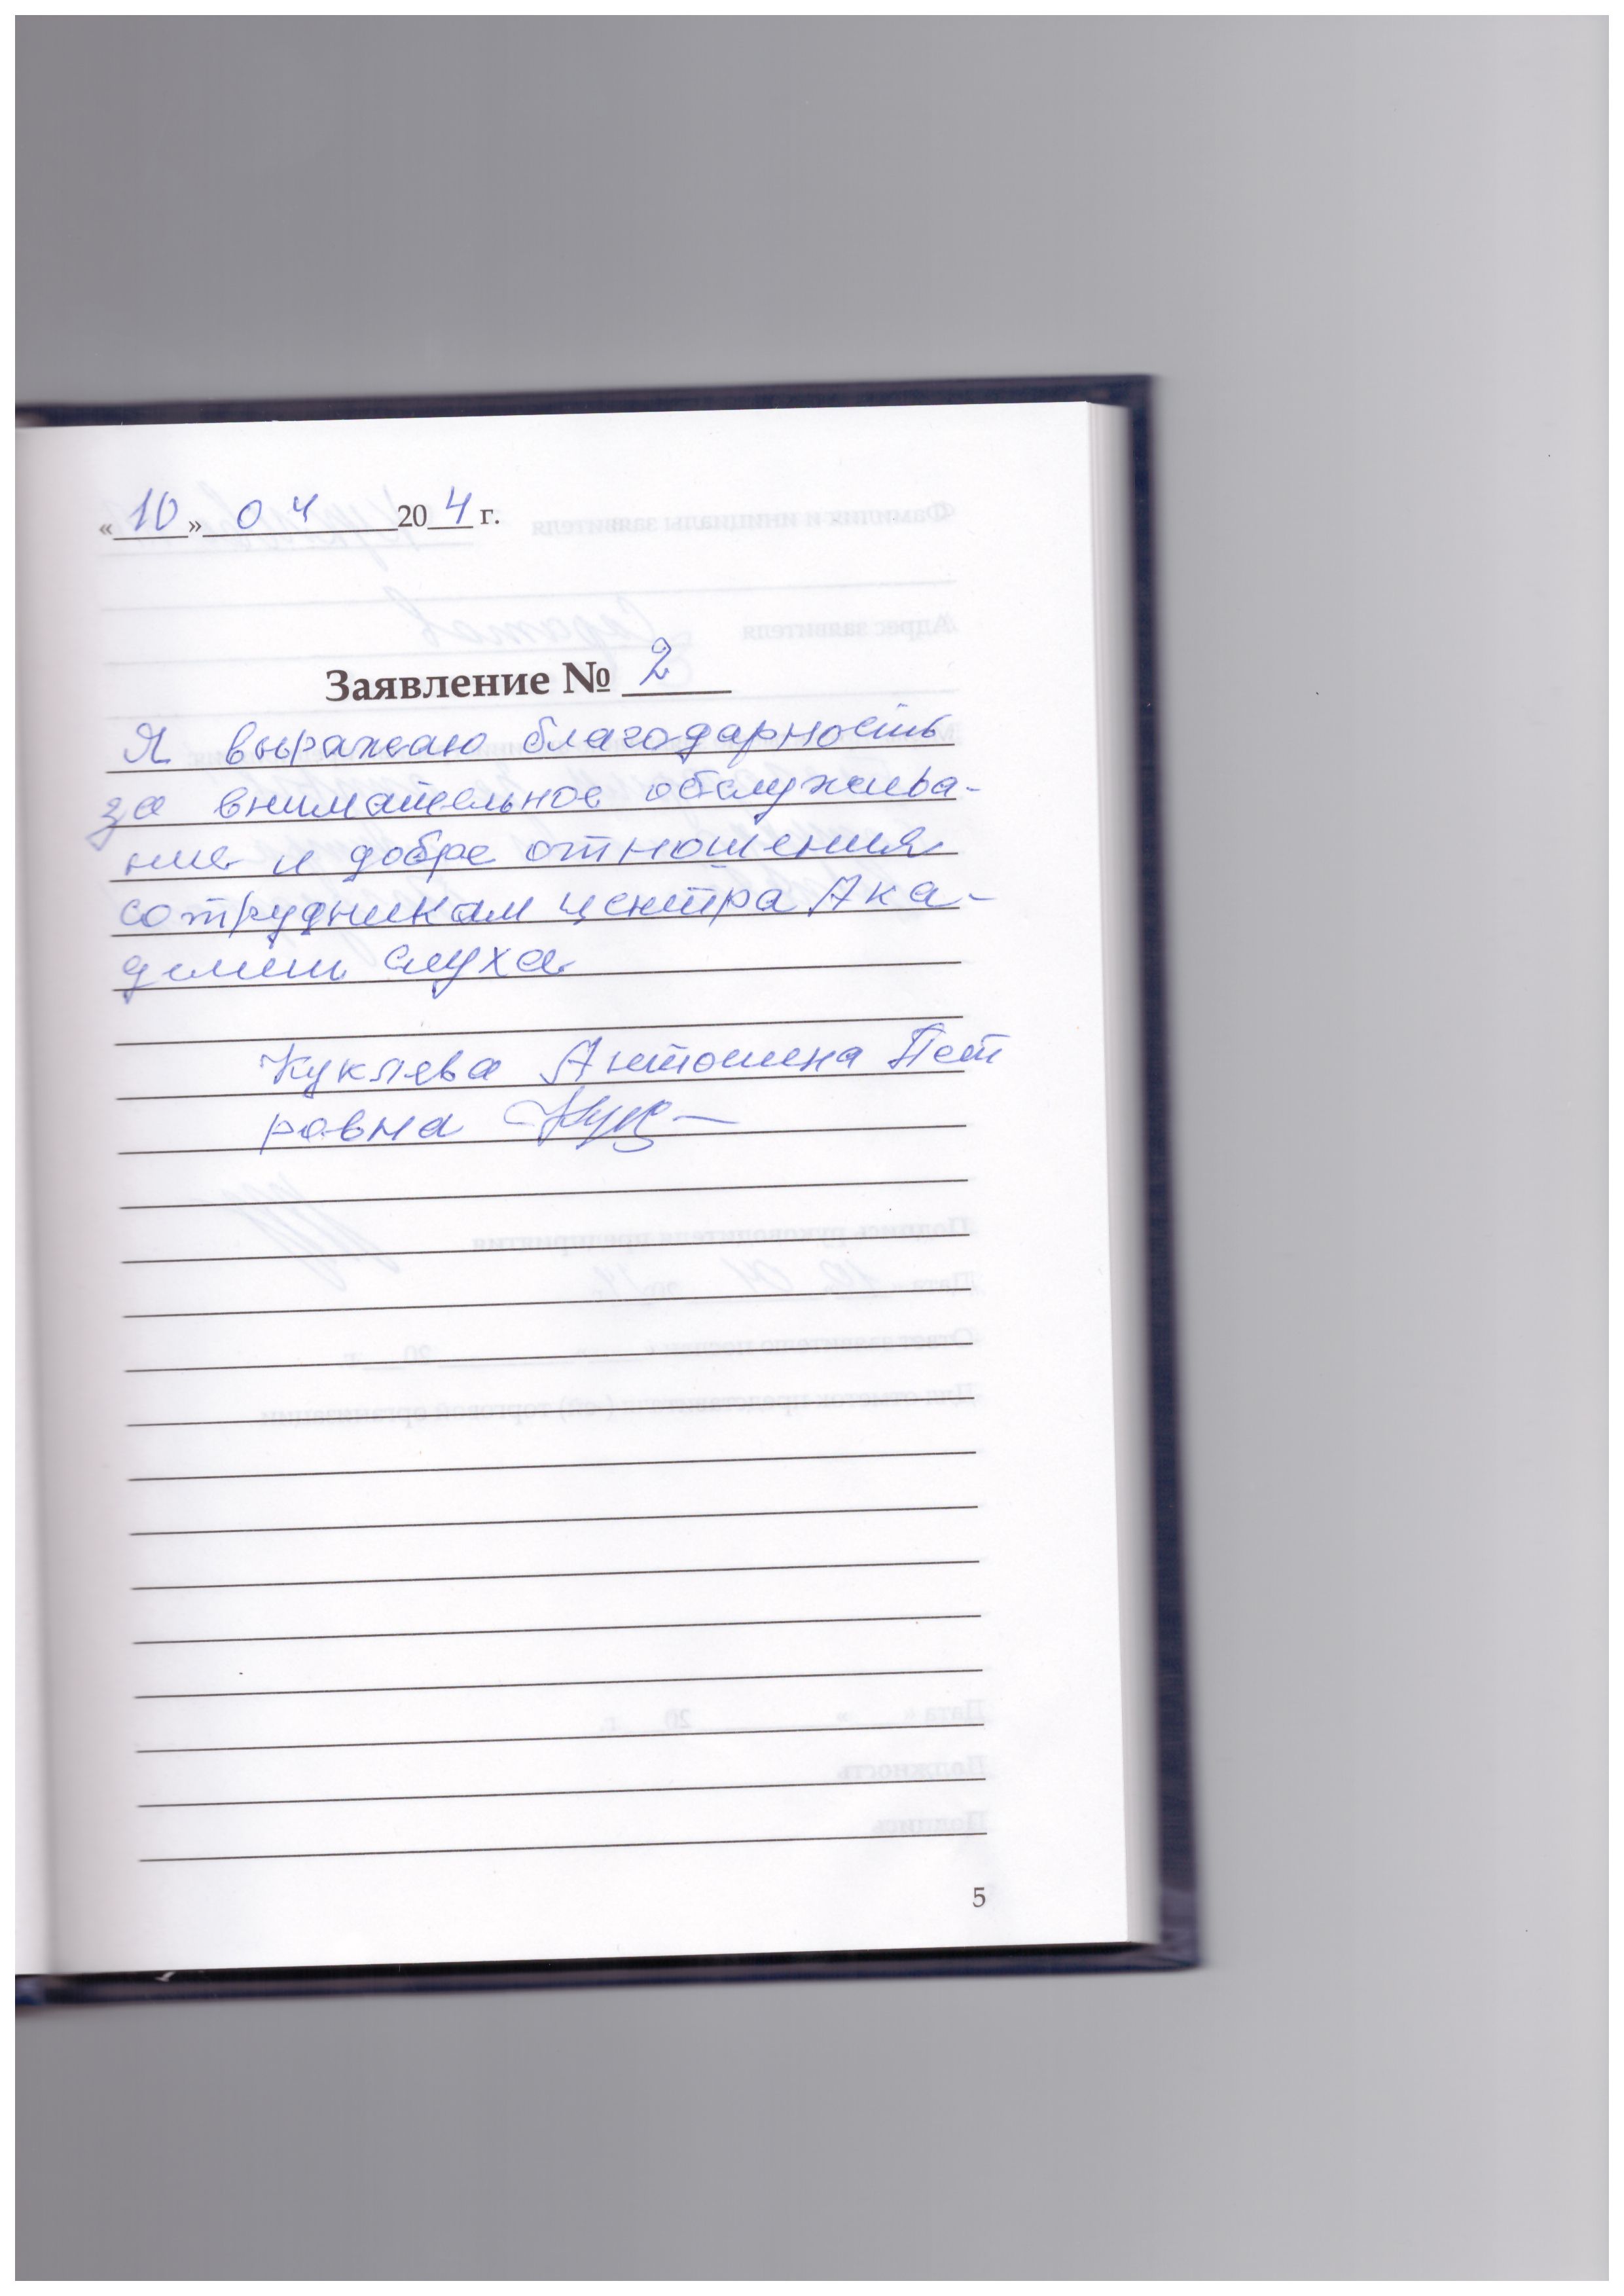 «10» 04 204 г.
Заявление № 2
Я выражаю благодарность
за внимательное обслужива-
ние и добре отношения
сотрудникам центра Ака-
демии слуха
Куклева Антонина Пет
ровна
5